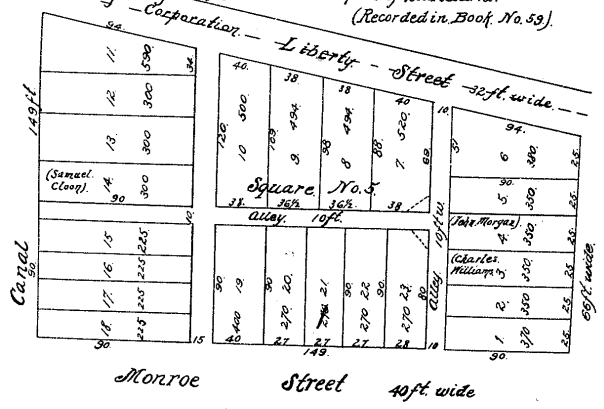 (Recorded in Book No. 59).
Corporation
Liberty Street 32 ft. wide.
94.
11. 590. 34.
12. 300
13. 300
14. 300
(Samuel Cloon).
90
149 ft
Canal
90.
15 225
16. 225
17. 225
18. 225
90
10.
15
40. 38. 38 40
120. 10 500.
109 9. 494.
98 8 494.
88. 7. 520.
Square No. 5.
38. 36½ 36½ 38
Alley. 10ft.
90. 19. 400
90 20. 270
21.
90. 22 270
90. 23. 270
80
40 27 27 27 28
149.
10.
Alley 10ft w.
10
94.
6 380. 25.
90.
5. 350. 25.
(John Morgan)
4. 350. 25.
(Charles Williams)
350. 25
2. 350 25
1. 370 25.
90.
66 ft. wide.
Monroe Street 40 ft. wide